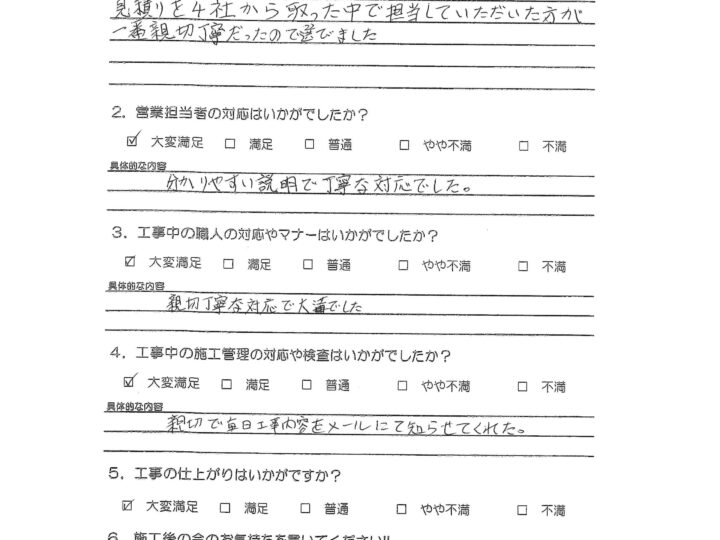 見積りを4社から取った中で担当していただいた方が
一番親切丁寧だったので選びました
2. 営業担当者の対応はいかがでしたか?
☑ 大変満足 □ 満足 □ 普通 □ やや不満 □ 不満
具体的な内容
分かりやすい説明で丁寧な対応でした。
3. 工事中の職人の対応やマナーはいかがでしたか?
☑ 大変満足 □ 満足 □ 普通 □ やや不満 □ 不満
具体的な内容
親切丁寧な対応で大満でした
4. 工事中の施工管理の対応や検査はいかがでしたか?
☑ 大変満足 □ 満足 □ 普通 □ やや不満 □ 不満
具体的な内容
親切で毎日工事内容をメールにて知らせてくれた。
5. 工事の仕上がりはいかがですか?
☑ 大変満足 □ 満足 □ 普通 □ やや不満 □ 不満
6. 施工後の今のお気持ちを書いてください!!